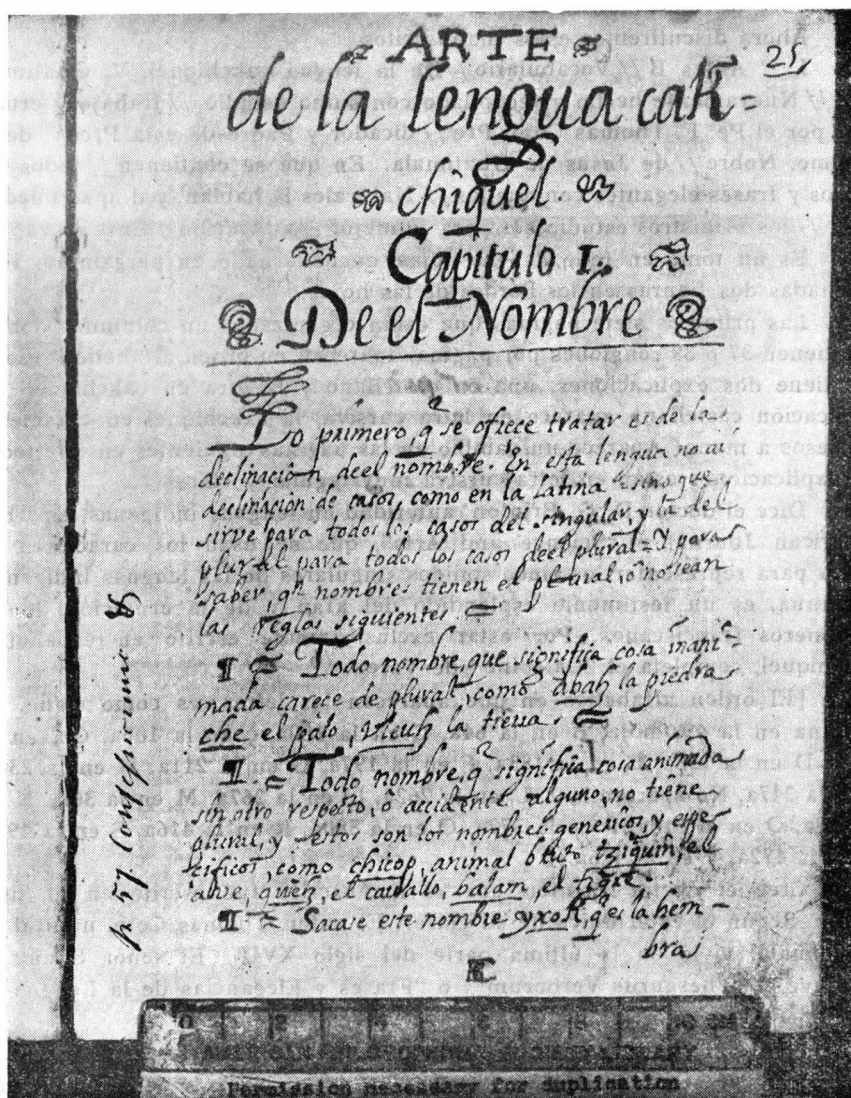 ARTE
25,
de la lengua cak=
chiquel
Capitulo 1.º
De el Nombre
Lo primero, q̃ se ofrece tratar es de la
declinación de el nombre. En esta lengua no ai
declinación de casos, como en la latina
sirve para todos los casos del singular, y
plural para todos los casos de el plural. Y para
saber q̃ nombres tienen el plural
las Reglas siguientes.
¶ = Todo nombre, que significa cosa inani=
mada carece de plural, como abah la piedra
che el palo, vleuh la tierra =
¶ = Todo nombre, q̃ significa cosa animada
sin otro respecto, ò accidente alguno, no tiene
plural, y estos son los nombres genericos, y espe
cificos, como chicop, animal bruto, tziquin, el
ave, queh, el cauallo, balam, el tigre =
¶ = Sacase este nombre yxoK, q̃ es la hem
bra
Permission necessary for duplication